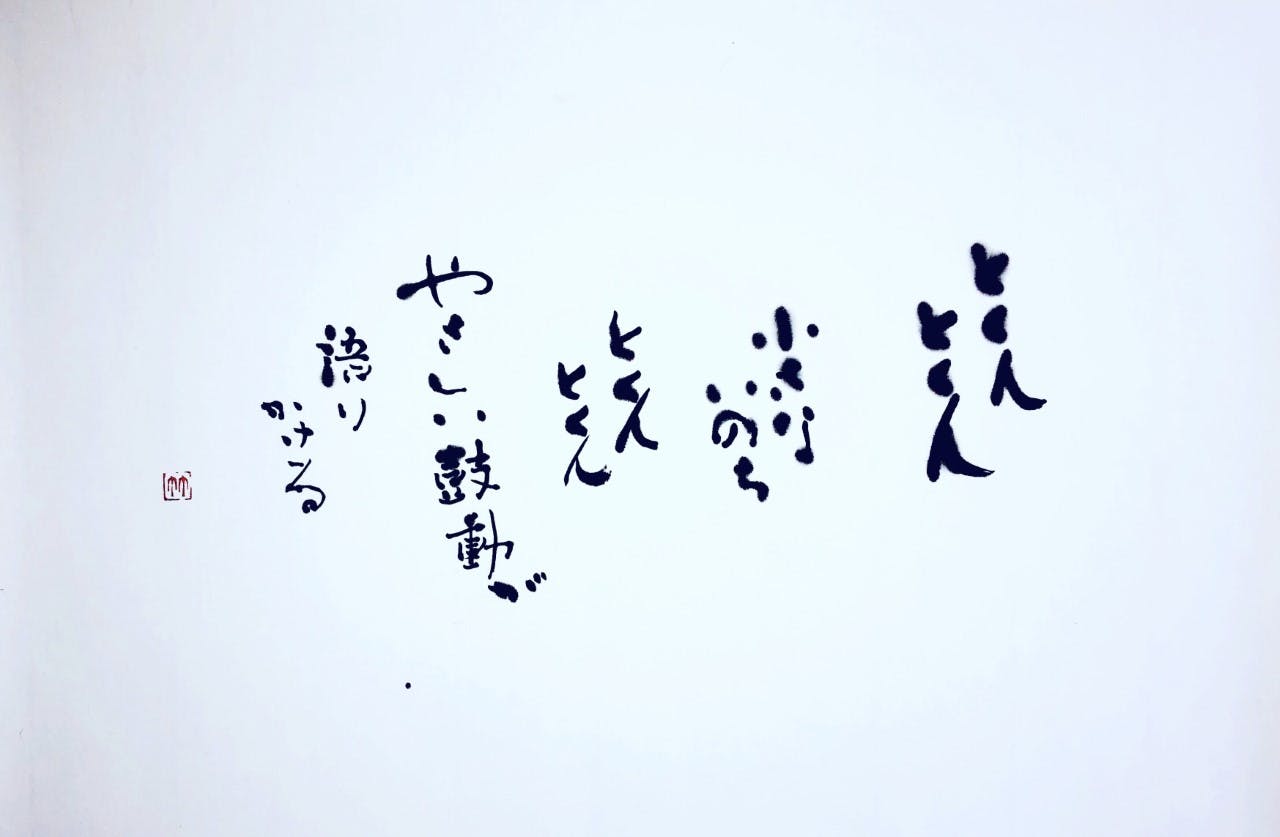 とくん
とくん
小さな
いのち
とくん
とくん
やさしい鼓動が
語り
かける